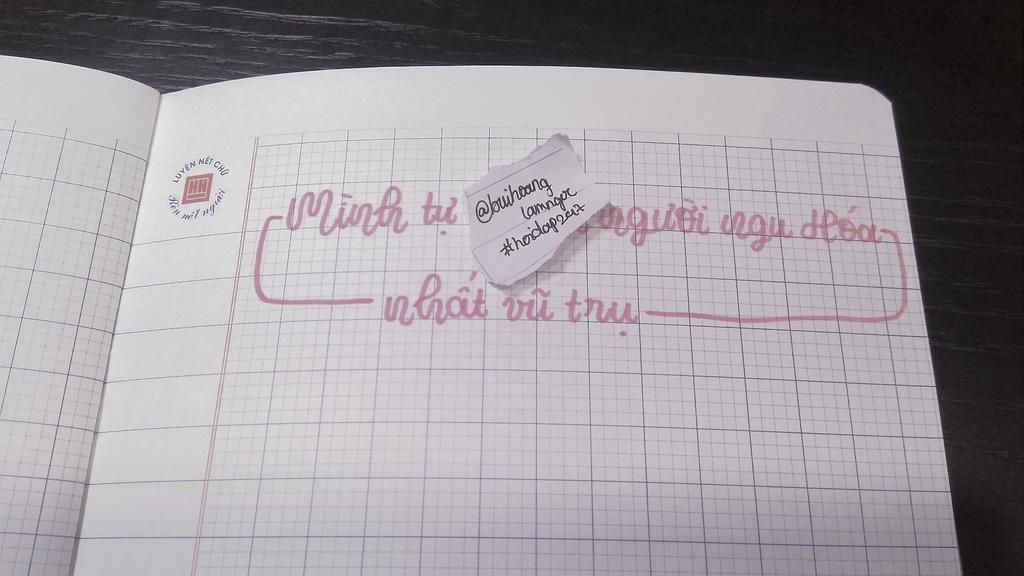 LUYỆN NÉT CHỮ
HH
Rèn nết người
Mình tự
người ngu Hóa
nhất vũ trụ
@buihoang
lamngoc
#hoidap247